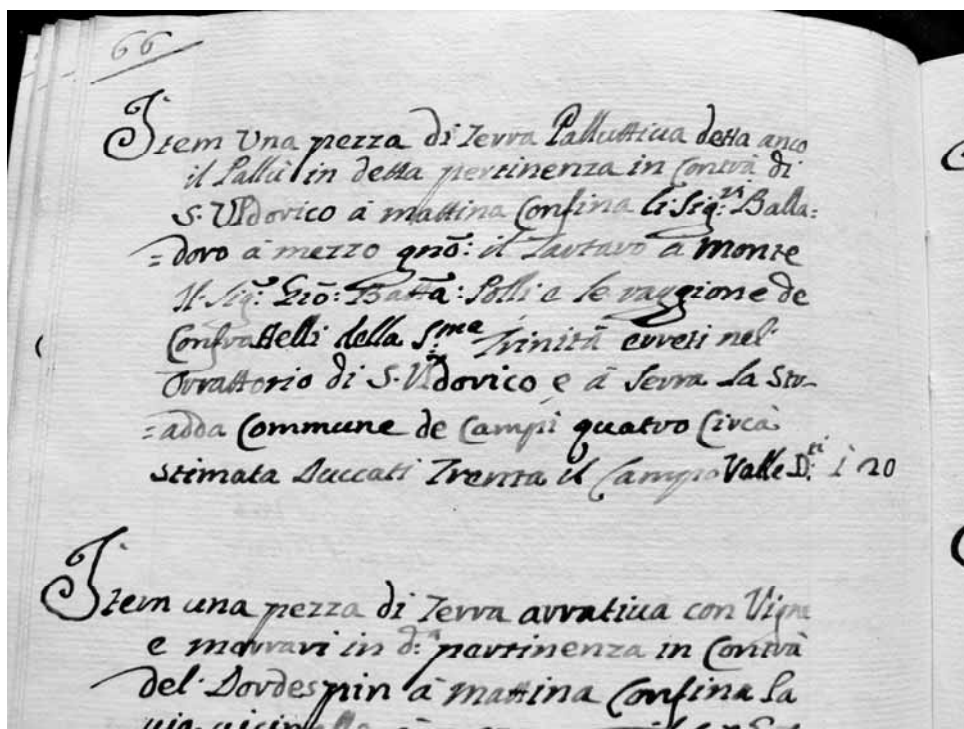 66
Item Una pezza di Terra Palluttiua detta anco
il Pallù in detta pertinenza in Contrà di
S. Vldovico à mattina Confina li Sig:ri Balla=
=doro à mezzo gnõ: il Tartaro a Monte
Il Sig: Giõ: Batta: Polli e le raggione de
Confrattelli della S:ma Trinità erreti nel
Orrattorio di S. Vldovico e à Serra La Str-
=adda Commune de Campi quatro Circà
Stimata Duccati Trenta il Campo Valle D:ti 120
Item una pezza di Terra arratiua con Vigne
e morrari in d:a partinenza in Contrà
del Dordespin à mattina Confina La
via